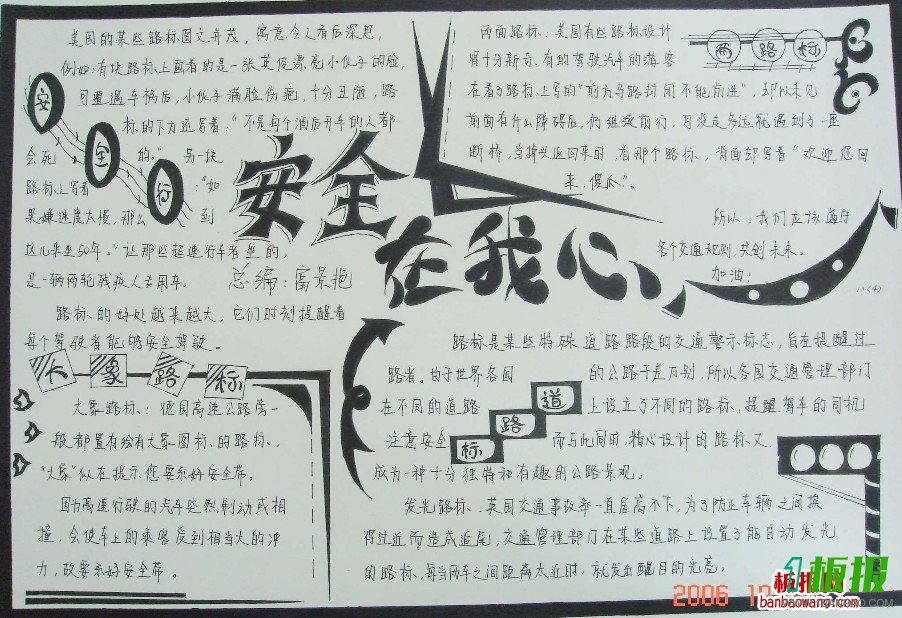 美国的某些路标图文并茂，寓意令人看后深思，
例如：有块路标上画着的是一张英俊漂亮小伙子的脸，
可遭遇车祸后，小伙子满脸伤疤，十分丑脸，路
标的下方还写着：“不是每个酒后开车的人都
会死的。”另一块
路标上写着：“如
果嫌速度太慢，那么到
这儿来坐50年。”让那些超速行车者坐的，
是一辆两轮残疾人专用车。
路标的好处越来越大，它们时刻提醒着
每个驾驶者能够安全驾驶。
安全行
安全
在我心
总编：富景艳
两路标
两面路标：美国有些路标设计
得十分新奇。有的驾驶汽车的游客
在看了路标上写的“前方马路封闭不能前进”，却以未见
前面有什么障碍后，仍继续前行，可没走多远就遇到了一座
断桥，当掉头返回来时，看那个路标，背面却写着“欢迎您回
来，傻瓜”。
所以，我们应该遵守
各个交通规则，共创未来。
加油！
八(4)
大象路标
大象路标：德国高速公路旁一
般都置有绘有大象图标的路标，
“大象”似在提示您要系好安全带。
因为高速行驶的汽车突然制动或相
撞，会使车上的乘客受到相当大的冲
力，故要系好安全带。
道路标
路标是某些特殊道路路段的交通警示标志，旨在提醒过
路者。由于世界各国的公路千差万别，所以各国交通管理部门
在不同的道路上设立了不同的路标，提醒驾车的司机
注意安全。而与此同时，精心设计的路标又
成为一种十分独特和有趣的公路景观。
发光路标：英国交通事故率一直居高不下，为了防止车辆之间挨
得过近而造成追尾，交通管理部门在某些道路上设置了能自动发光
的路标，每当两车之间距离太近时，就发出醒目的光亮。
2006
板报
板报网
banbaowang.com